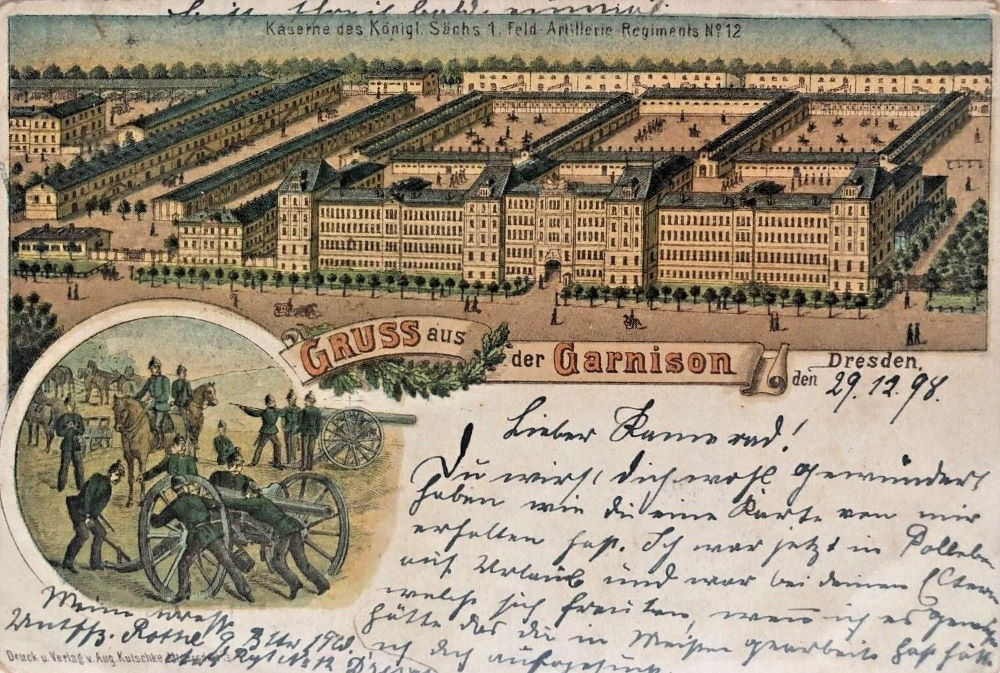 Kaserne des Königl. Sächs 1. Feld-Artillerie-Regiments No 12
GRUSS aus
der Garnison
Dresden,
den 29.12.98.
Lieber Kamerad!
Du wirst dich wohl gewundert
haben wie du eine Karte von mir
erhalten hast. Ich war jetzt in
auf Urlaub und war bei deinen Eltern
welche sich freuten, wenn ich es
hätte das du in Meißen gearbeitet hast hätte
ich dich aufgesucht.
Meine Adresse
Rothe 9
No 12
Druck u. Verlag v. Aug. Kutschke